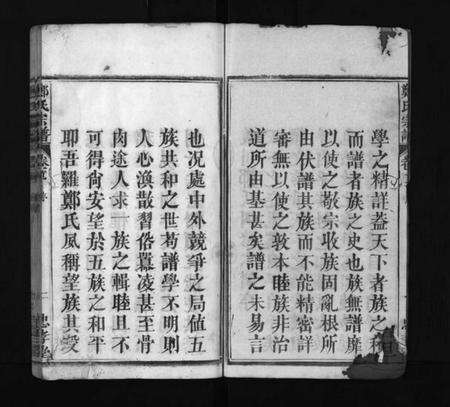 學之精詳蓋天下者族之積
而譜者族之史也族無譜靡
以使之敬宗收族固亂根所
由伏譜其族而不能精密詳
審無以使之敦本睦族非治
道所由基甚矣譜之未易言
鄭氏宗譜
也况處中外競爭之局值五
族共和之世苟譜學不明則
人心渙散習俗囂凌甚至骨
肉途人求一族之輯睦且不
可得尚安望於五族之和平
耶吾羅鄭氏夙稱望族其受
鄭氏宗譜 卷首 序 二 忠孝堂